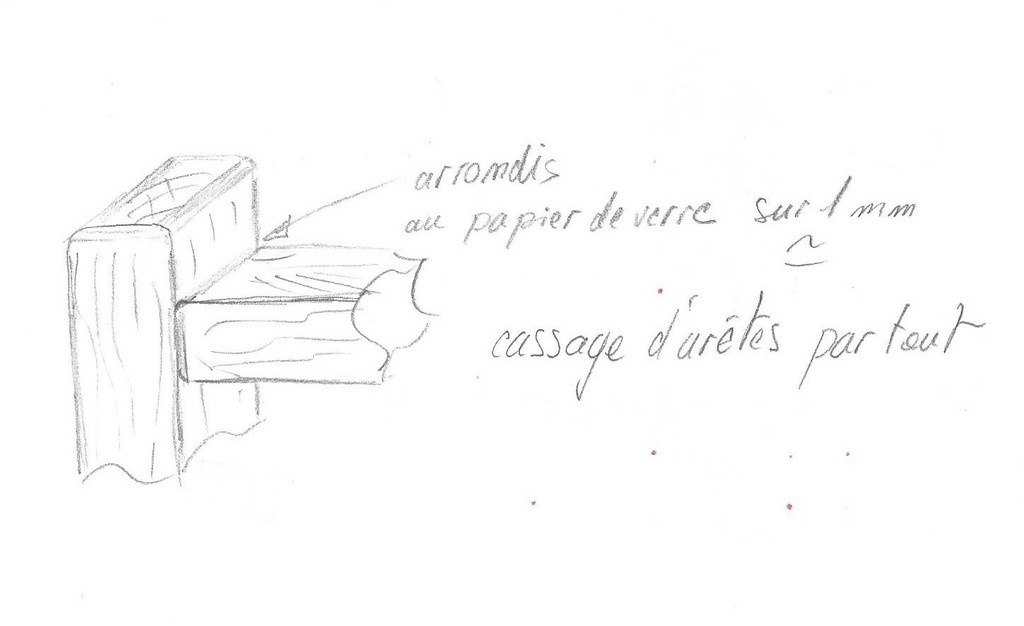 arrondis
au papier de verre sur 1 mm
~
cassage d'arêtes partout